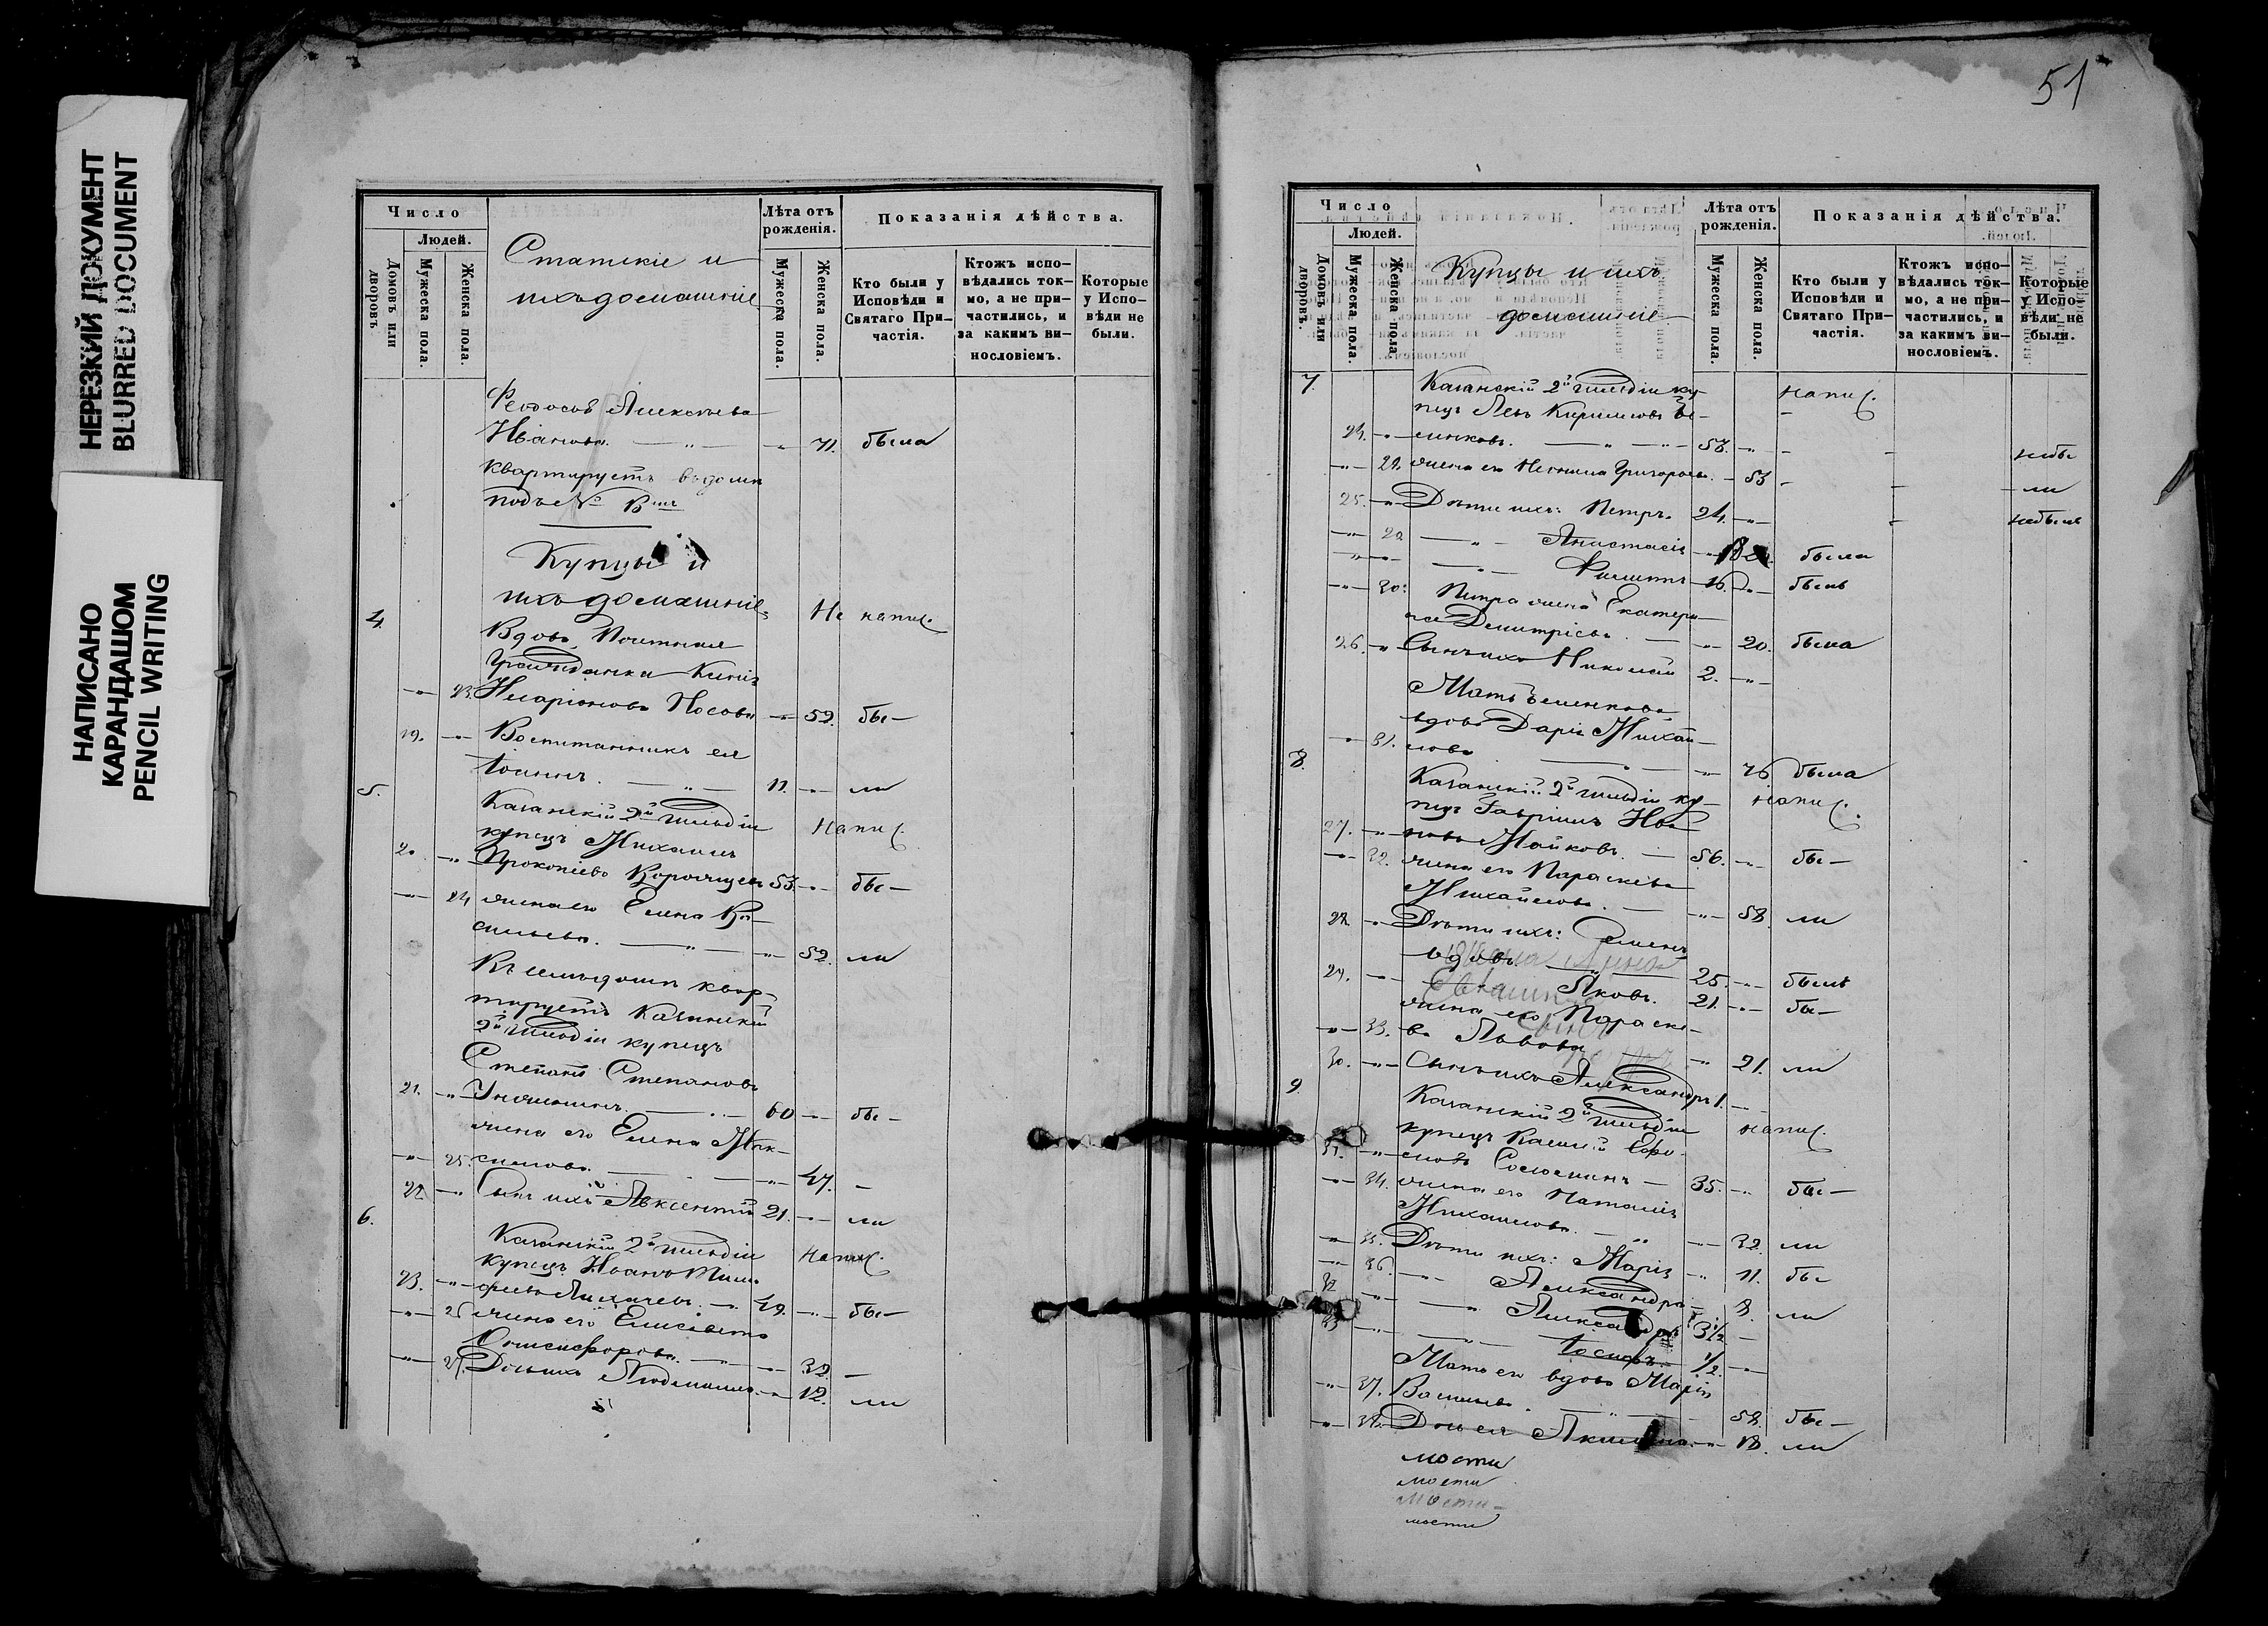 НЕРЕЗКИЙ ДОКУМЕНТ
BLURRED DOCUMENT
НАПИСАНО
КАРАНДАШОМ
PENCIL WRITING
Число
Людей.
Домовъ или дворовъ.
Мужеска пола.
Женска пола.
Статскіе и
ихъ домашніе
Лѣта отъ рожденія.
Мужеска пола.
Женска пола.
Показанія дѣйства.
Кто были у Исповѣди и Святаго Причастія.
Ктожъ исповѣдались токмо, а не причастились, и за какимъ винословіемъ.
Которые у Исповѣди не были.
Алексѣева
Иванова. 71. была
квартируетъ въ домѣ
подъ №
Купцы и
ихъ домашніе
4. Не напис.
Вдова, Почетная
Гражданка
23. Иларіонова Носова 52. бы-
19. Воспитанникъ ея
Іоаннъ. 11. ли
5. Казанскій 2й гильдіи Напис.
купецъ Михаилъ
20. Прокопіевъ 53. бы-
24. жена его Елена Ва-
сильева. 52. ли
квар-
тируетъ Казанскій
2й гильдіи купецъ
Степанъ Степановъ
21. 60 бы-
жена его Елена Мак-
25. симова. 47. -
22. Сынъ ихъ Авксентій 21. ли
6. Казанскій 2й гильдіи напис.
купецъ Иванъ Тимо-
23. феевъ Лихачевъ. 49. бы-
26 жена его Елисавета
Онисифорова. 32. -
27. Дочь ихъ Людмила. 12. ли
51
Число
Людей.
Домовъ или дворовъ.
Мужеска пола.
Женска пола.
Купцы и ихъ
домашніе
Лѣта отъ рожденія.
Мужеска пола.
Женска пола.
Показанія дѣйства.
Кто были у Исповѣди и Святаго Причастія.
Ктожъ исповѣдались токмо, а не причастились, и за какимъ винословіемъ.
Которые у Исповѣди не были.
7. Казанскій 2й гильдіи ку- напис.
пецъ Левъ Кириловъ Бѣ-
24. ленковъ. 58. небы
29. жена его Григорьева. 53 - ли
25. Дѣти ихъ: Петръ. 24. небылъ
Анастасія была
Филиппъ 16. былъ
30. Петра жена Екатери-
на Димитріева. 20. была
26. Сынъ ихъ Николай 2.
Мать Бѣленкова
вдова Дарія Михай-
31. лова 76 была
8. Казанскій 2й гильдіи ку- напис.
пецъ Гавріилъ Ива-
27. новъ Майковъ. 56. бы-
32. жена его Параскева
Михайлова. 58. ли
28. Дѣти ихъ: Семенъ
вдовъ. 25. былъ
29. Яковъ. 21. бы-
жена его Параске-
33. ва Львова 21. ли
30. Сынъ ихъ Александръ 1.
9. Казанскій 2й гильдіи напис.
купецъ
31. 35. бы-
34. жена его Наталія
Михайлова. 32. ли
35. Дѣти ихъ: Марія 11. бы
36. Александра 8. ли
32 Александръ 3 1/2 -
33 Іосифъ. 1/2.
Мать его вдова Марія
37. Васильева. 58. бы-
38. Дочь ея 18. ли
мости
мости
мости-
мости